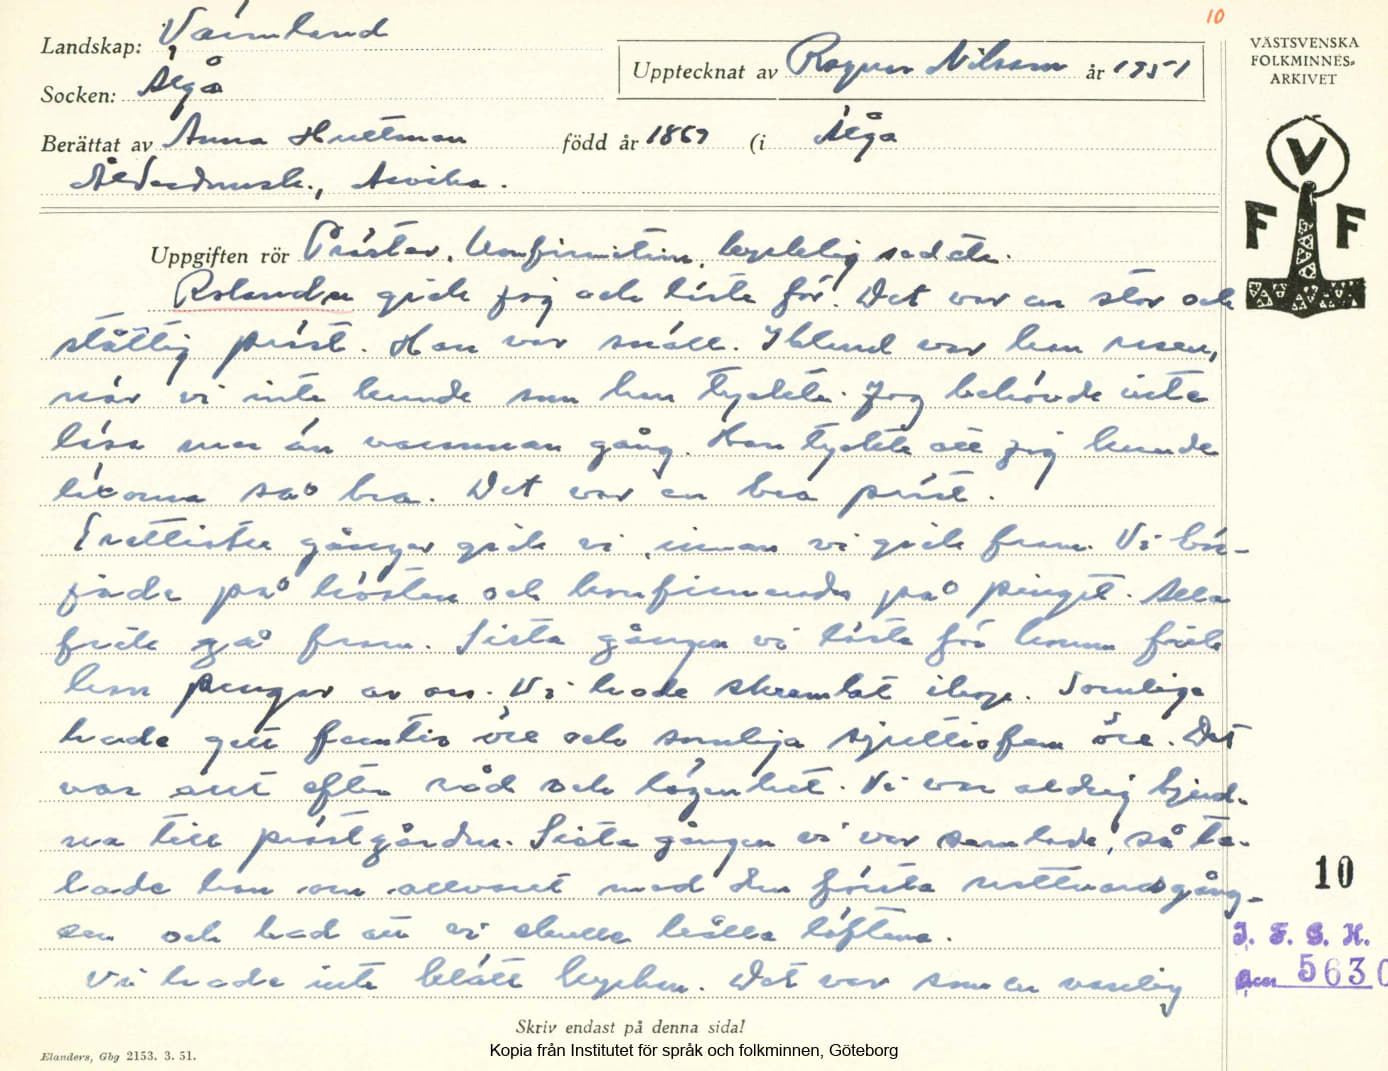 10
Landskap: Värmland
Socken: Älgå
Upptecknat av Ragnar Nilsson år 1951
VÄSTSVENSKA
FOLKMINNES-
ARKIVET
Berättat av Anna Hultman född år 1869 (i Älgå
Ålderdomsh., Arvika.
V
F F
Uppgiften rör Präster, konfirmation, kyrklig sed etc.
gick jag och läste för. Det var en stor och
ståttlig präst. Han var snäll. Ibland var han
när vi inte kunde som han tyckte. Jag behövde inte
läsa mer än varannan gång. Han tyckte att jag kunde
läxorna så bra. Det var en bra präst.
gånger gick vi, innan vi gick fram. Vi bör-
jade på hösten och konfirmerades på pingst. Alla
fick gå fram. Sista gången vi läste för honom fick
han pengar av oss. Vi hade skramlat ihop. Somliga
hade gett femtio öre och somliga sjuttiofem öre. Det
var allt efter råd och lägenhet. Vi var aldrig bjud-
na till prästgården. Sista gången vi var samlade, så ta-
lade han om allvaret med den första nattvardsgång-
en och bad att vi skulle hålla löftena.
Vi hade inte klätt kyrkan. Det var som en vanlig
10
I. F. G. H.
Acc. 5630
Skriv endast på denna sida!
Elanders, Gbg 2153. 3. 51.
Kopia från Institutet för språk och folkminnen, Göteborg